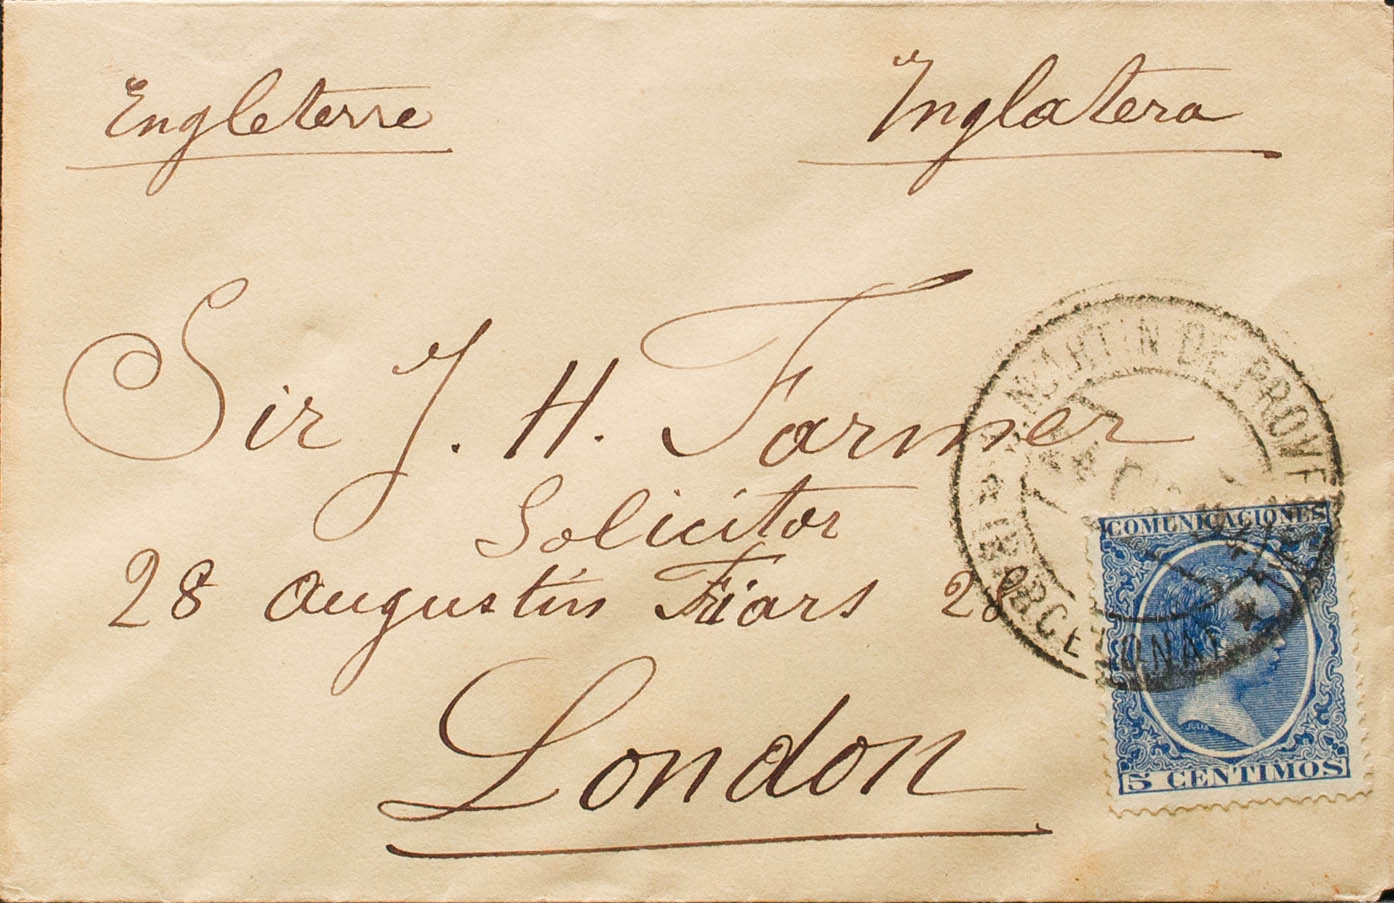 Engleterre Inglatera
Sir J. H. Farmer
Solicitor
28 Augustin Friars 28
London
MARTIN DE PROVE
BARCELONA
COMUNICACIONES
5 CENTIMOS